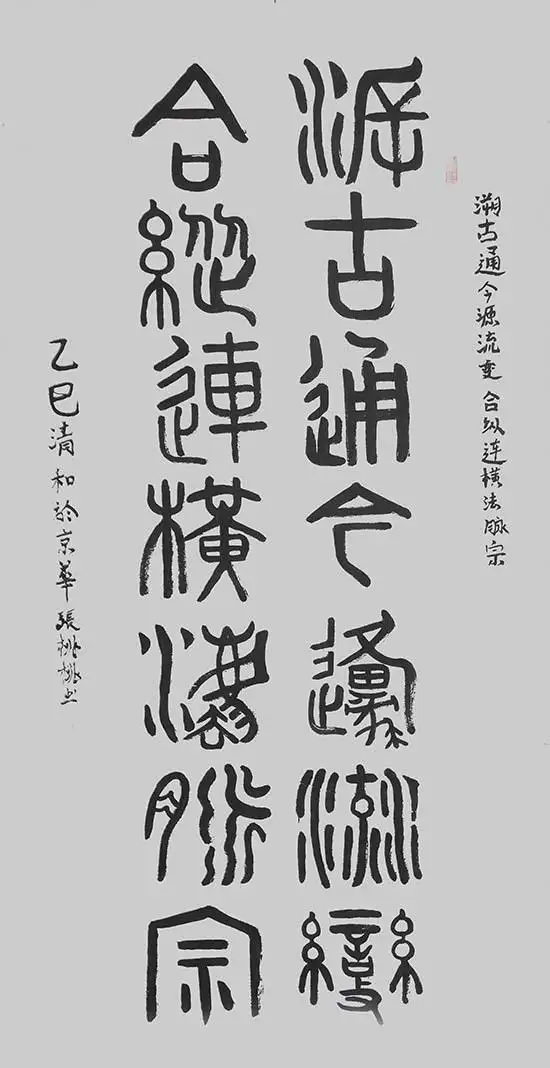 溯古通今源流变 合纵连横法脉宗
泝古通今邍流變
合縱連橫灋脈宗
乙巳清和於京華張桃桃书